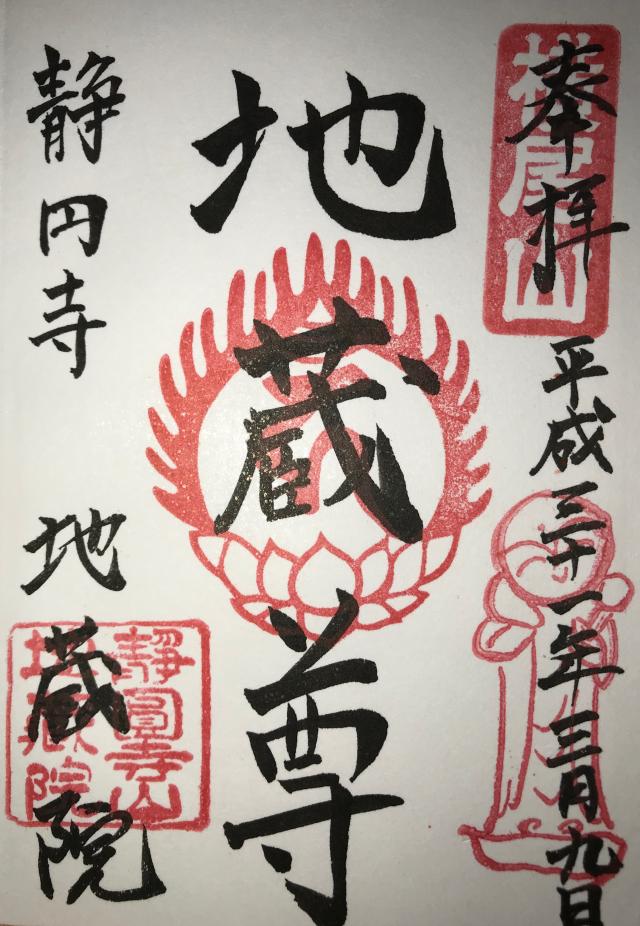 奉拝
平成三十一年三月九日
地蔵尊
静円寺 地蔵院
静圓寺山
地蔵院